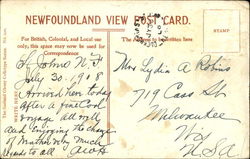 NEWFOUNDLAND VIEW POST CARD.
For British, Colonial, and Local use
only, this space may now be used for
Correspondence
The Address to be written here
St Johns N.F
July 30. 1908
Arrived here today
after a fine Cool
voyage all well
and Enjoying the change
of Weather very much
regards to all
Mrs Lydia A Robins
719 Cass St
Milwaukee
U.S.A